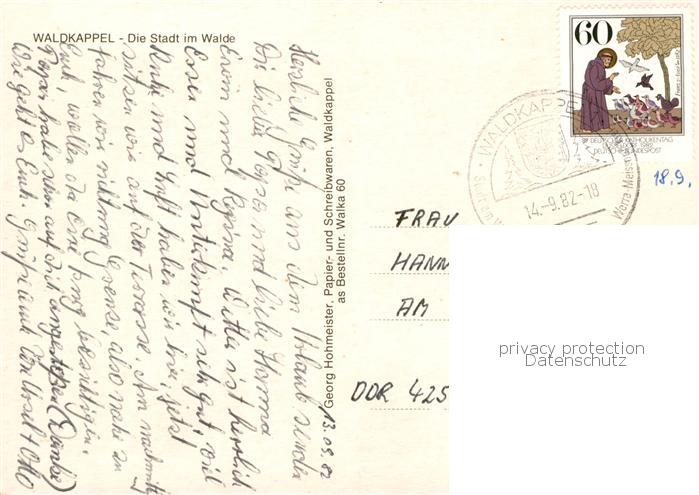 WALDKAPPEL - Die Stadt im Walde
Herzliche Grüße aus dem Urlaub senden
Dir liebe und liebe
Erwin und Regina. Wetter ist herrlich
Essen und Unterkunft sehr gut, viel
Ruhe und Luft haben wir hier, jetzt
sitzen wir auf der Terrasse. Am nachmitt.
fahren wir richtung Grenze, also nahe zu
Euch, wollen da eine besichtigen.
haben schon auf dich angestoßen (Danke)
Wie geht es Euch. Grüße auch von Ursel + Otto
13.09.82
Georg Hohmeister, Papier- und Schreibwaren, Waldkappel
as Bestellnr. Walka 60
60
87. DEUTSCHER KATHOLIKENTAG
DÜSSELDORF 1982
DEUTSCHE BUNDESPOST
WALDKAPPEL
14.-9.82-18
Werra-Meis
18.9.
FRAU
HANN
AM
DDR 425
privacy protection
Datenschutz